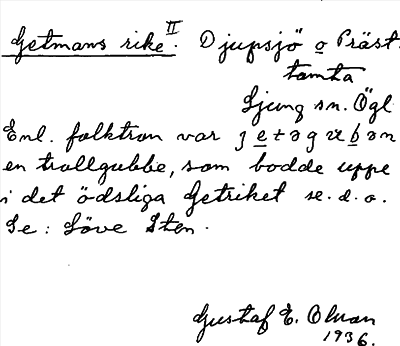 Getmans rike II. Djupsjö o Präst-
tomta
Ljung sn. Ögl
Enl. folktron var
en trollgubbe, som bodde uppe
i det ödsliga Getriket se. d. o.
Se: Söve Sten.
Gustaf E. Olsson
1936.